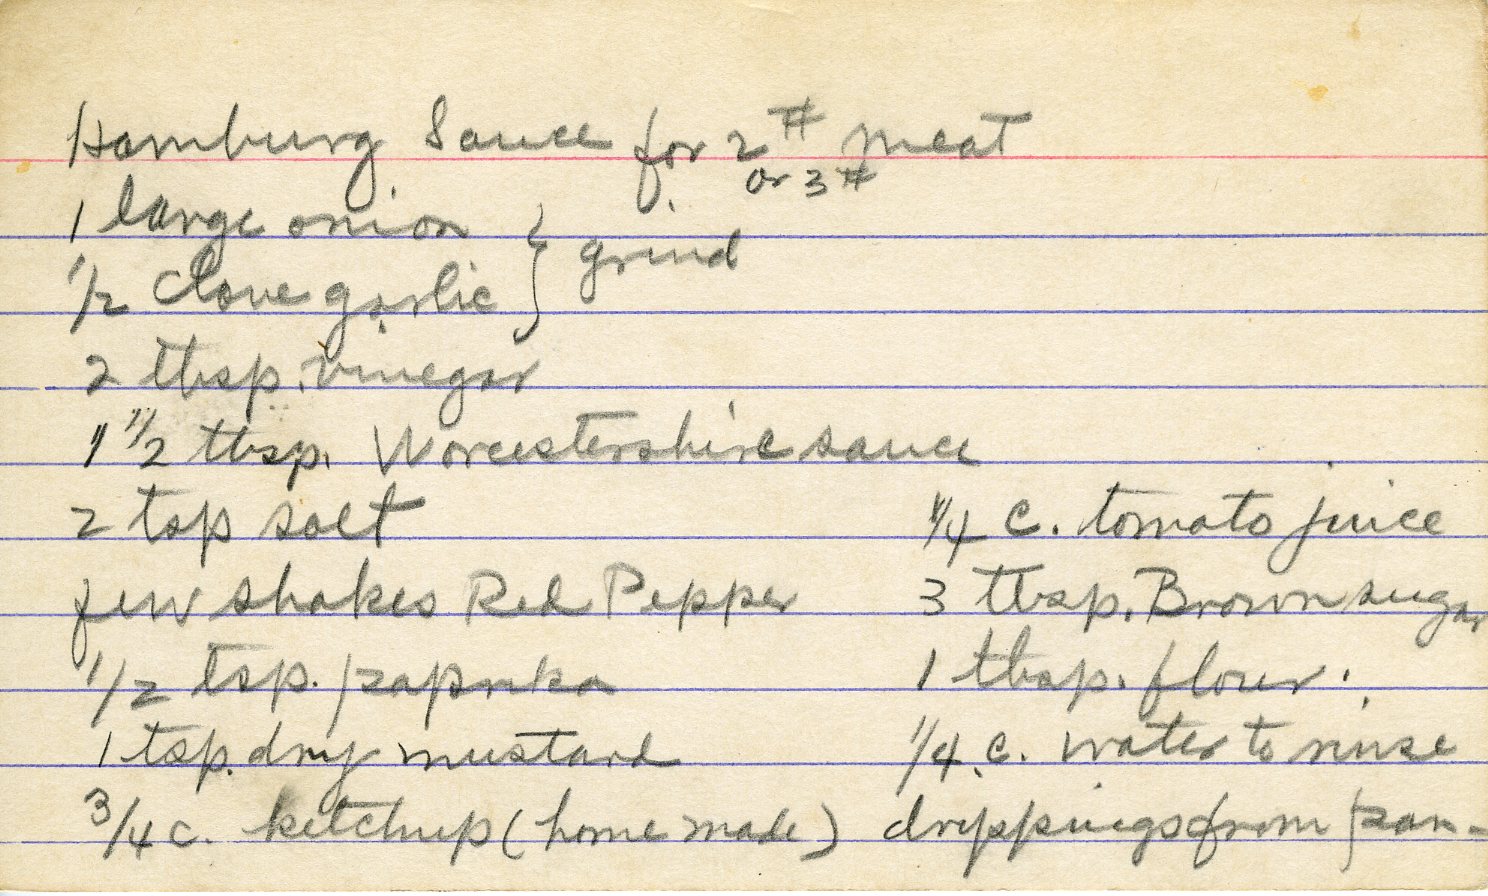 Hamburg Sauce for 2 # meat
or 3 #
1 large onion } grind
1/2 Clove garlic
2 tbsp. vinegar
1 1/2 tbsp. Worcestershire sauce
2 tsp salt
few shakes Red Pepper
1/2 tsp. paprika
1 tsp. dry mustard
3/4 c. ketchup (home made)
1/4 c. tomato juice
3 tbsp. Brown sugar
1 tbsp. flour.
1/4 c. water to rinse
drippings from pan-